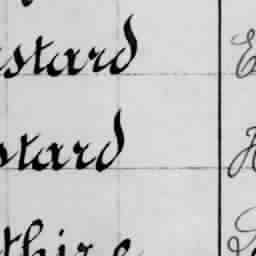 stard E
stard H
thire